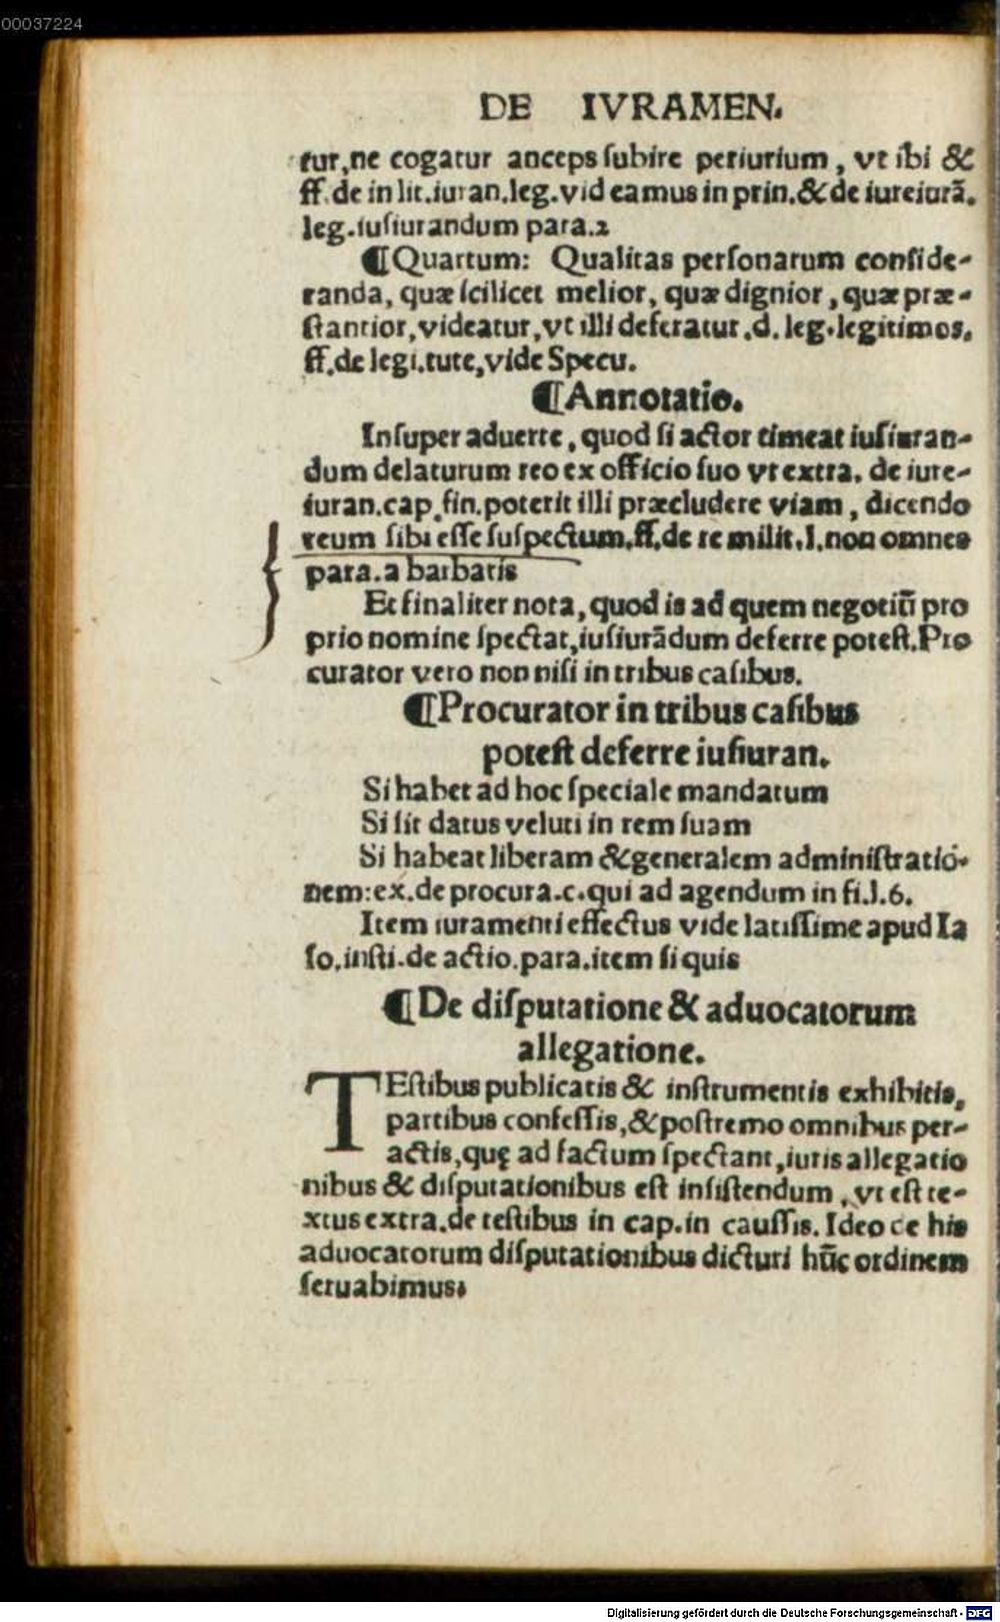 00037224
DE IVRAMEN.
tur, ne cogatur anceps ſubire periurium, vt ibi &
ff. de in lit. iuran. leg. vid eamus in prin. & de iureiurā.
leg. iuſiurandum para. 2
¶Quartum: Qualitas perſonarum conſide-
randa, quæ ſcilicet melior, quæ dignior, quæ præ-
ſtantior, videatur, vt illi deferatur. d. leg. legitimos.
ff. de legi. tute, vide Specu.
¶Annotatio.
Inſuper aduerte, quod ſi actor timeat iuſiuran-
dum delaturum reo ex officio ſuo vt extra. de iure-
iuran. cap. fin. poterit illi præcludere viam, dicendo
reum ſibi eſſe ſuſpectum. ff. de re milit. l. non omnes
para. a barbaris
Et finaliter nota, quod is ad quem negotiū pro
prio nomine ſpectat, iuſiurādum deferre poteſt. Pro
curator vero non niſi in tribus caſibus.
¶Procurator in tribus caſibus
poteſt deferre iuſiuran.
Si habet ad hoc ſpeciale mandatum
Si ſit datus veluti in rem ſuam
Si habeat liberam & generalem adminiſtratio-
nem: ex. de procura. c. qui ad agendum in fi. l. 6.
Item iuramenti effectus vide latiſſime apud Ia
ſo. inſti. de actio. para. item ſi quis
¶De diſputatione & aduocatorum
allegatione.
TEſtibus publicatis & inſtrumentis exhibitis,
partibus confeſſis, & poſtremo omnibus per-
actis, quę ad factum ſpectant, iuris allegatio
nibus & diſputationibus eſt inſiſtendum, vt eſt te-
xtus extra. de teſtibus in cap. in cauſſis. Ideo de his
aduocatorum diſputationibus dicturi hūc ordinem
ſeruabimus:
Digitalisierung gefördert durch die Deutsche Forschungsgemeinschaft - DFG